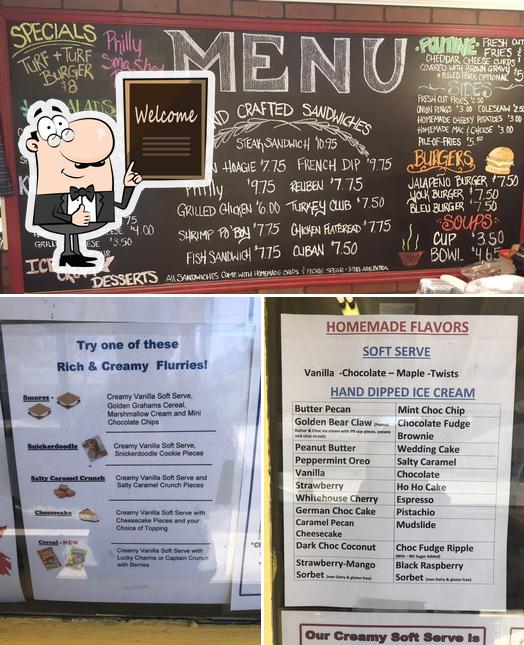 SPECIALS
TURF + TURF
BURGER
$8
Philly
MENU
Welcome
CRAFTED SANDWICHES
STEAK SANDWICH $10.95
HOAGIE $7.75 FRENCH DIP $9.75
Philly $9.75 REUBEN $7.75
GRILLED CHICKEN $6.00 TURKEY CLUB $7.50
SHRIMP PO'BOY $7.75 CHICKEN FLATBREAD $7.75
FISH SANDWICH $7.75 CUBAN $7.50
ALL SANDWICHES COME WITH HOMEMADE CHIPS & PICKLE SPEAR - SIDES ARE EXTRA
$4.00
$3.50
DESSERTS
POUTINE FRESH CUT
FRIES &
CHEDDAR CHEESE CURDS
COVERED WITH BROWN GRAVY
PULLED PORK OPTIONAL
SIDES
FRESH CUT FRIES $2.50
ONION RINGS $3.00 COLESLAW
HOMEMADE CHEESY POTATOES $3.00
HOMEMADE MAC & CHEESE $3.00
PILE-OF-FRIES $5.
BURGERS
JALAPEÑO BURGER $7.50
YOLK BURGER $7.50
BLEU BURGER $7.50
SOUPS
CUP $3.50
BOWL $4.65
Try one of these
Rich & Creamy Flurries!
Smores - Creamy Vanilla Soft Serve,
Golden Grahams Cereal,
Marshmallow Cream and Mini
Chocolate Chips
Snickerdoodle Creamy Vanilla Soft Serve,
Snickerdoodle Cookie Pieces
Salty Caramel Crunch Creamy Vanilla Soft Serve and
Salty Caramel Crunch Pieces
Cheesecake Creamy Vanilla Soft Serve with
Cheesecake Pieces and your
Choice of Topping.
Cereal - NEW Creamy Vanilla Soft Serve with
Lucky Charms or Captain Crunch
with Berries
HOMEMADE FLAVORS
SOFT SERVE
Vanilla -Chocolate – Maple -Twists
HAND DIPPED ICE CREAM
Butter Pecan Mint Choc Chip
Golden Bear Claw (Peanut Butter & Choc ice cream with PB cup pieces, peanuts and choc streak) Chocolate Fudge
Brownie
Peanut Butter Wedding Cake
Peppermint Oreo Salty Caramel
Vanilla Chocolate
Strawberry Ho Ho Cake
Whitehouse Cherry Espresso
German Choc Cake Pistachio
Caramel Pecan Mudslide
Cheesecake
Dark Choc Coconut Choc Fudge Ripple
(NSA – NO Sugar Added)
Strawberry-Mango Black Raspberry
Sorbet (non-Dairy & gluten free) Sorbet (non-Dairy & gluten free)
Our Creamy Soft Serve is